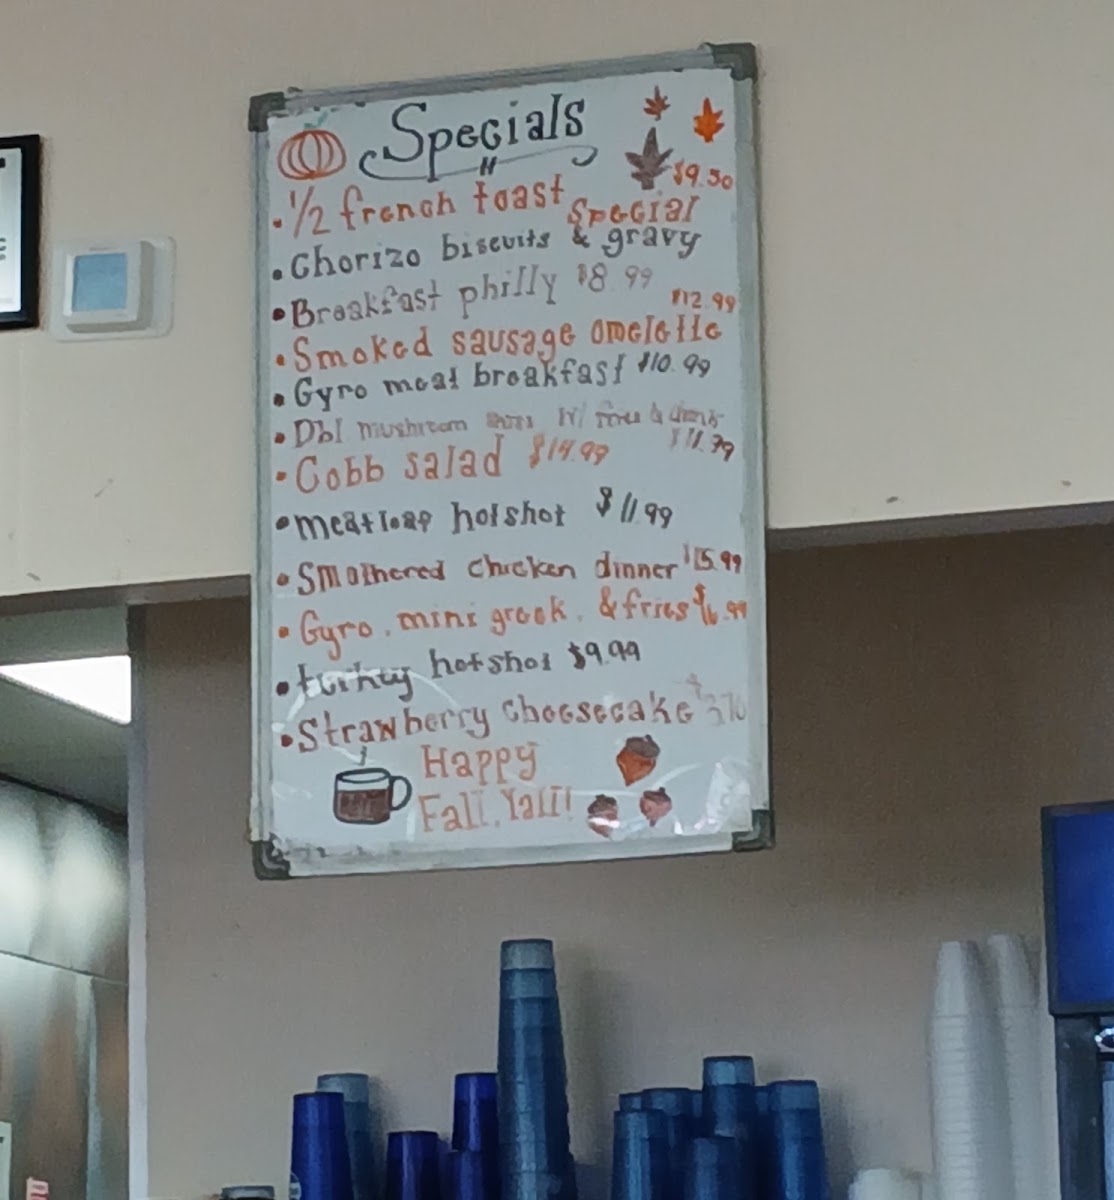 Specials
$9.50
• 1/2 french toast special
• Chorizo biscuits & gravy
• Breakfast philly $8.99
$12.99
• Smoked sausage omelette
• Gyro meat breakfast $10.99
• Dbl mushroom swiss w/ fries & drink
$11.99
• Cobb salad $14.99
• meatloaf hotshot $11.99
• Smothered chicken dinner $15.99
• Gyro, mini greek, & fries
• turkey hotshot $9.99
• Strawberry cheesecake
Happy
Fall, Yall!